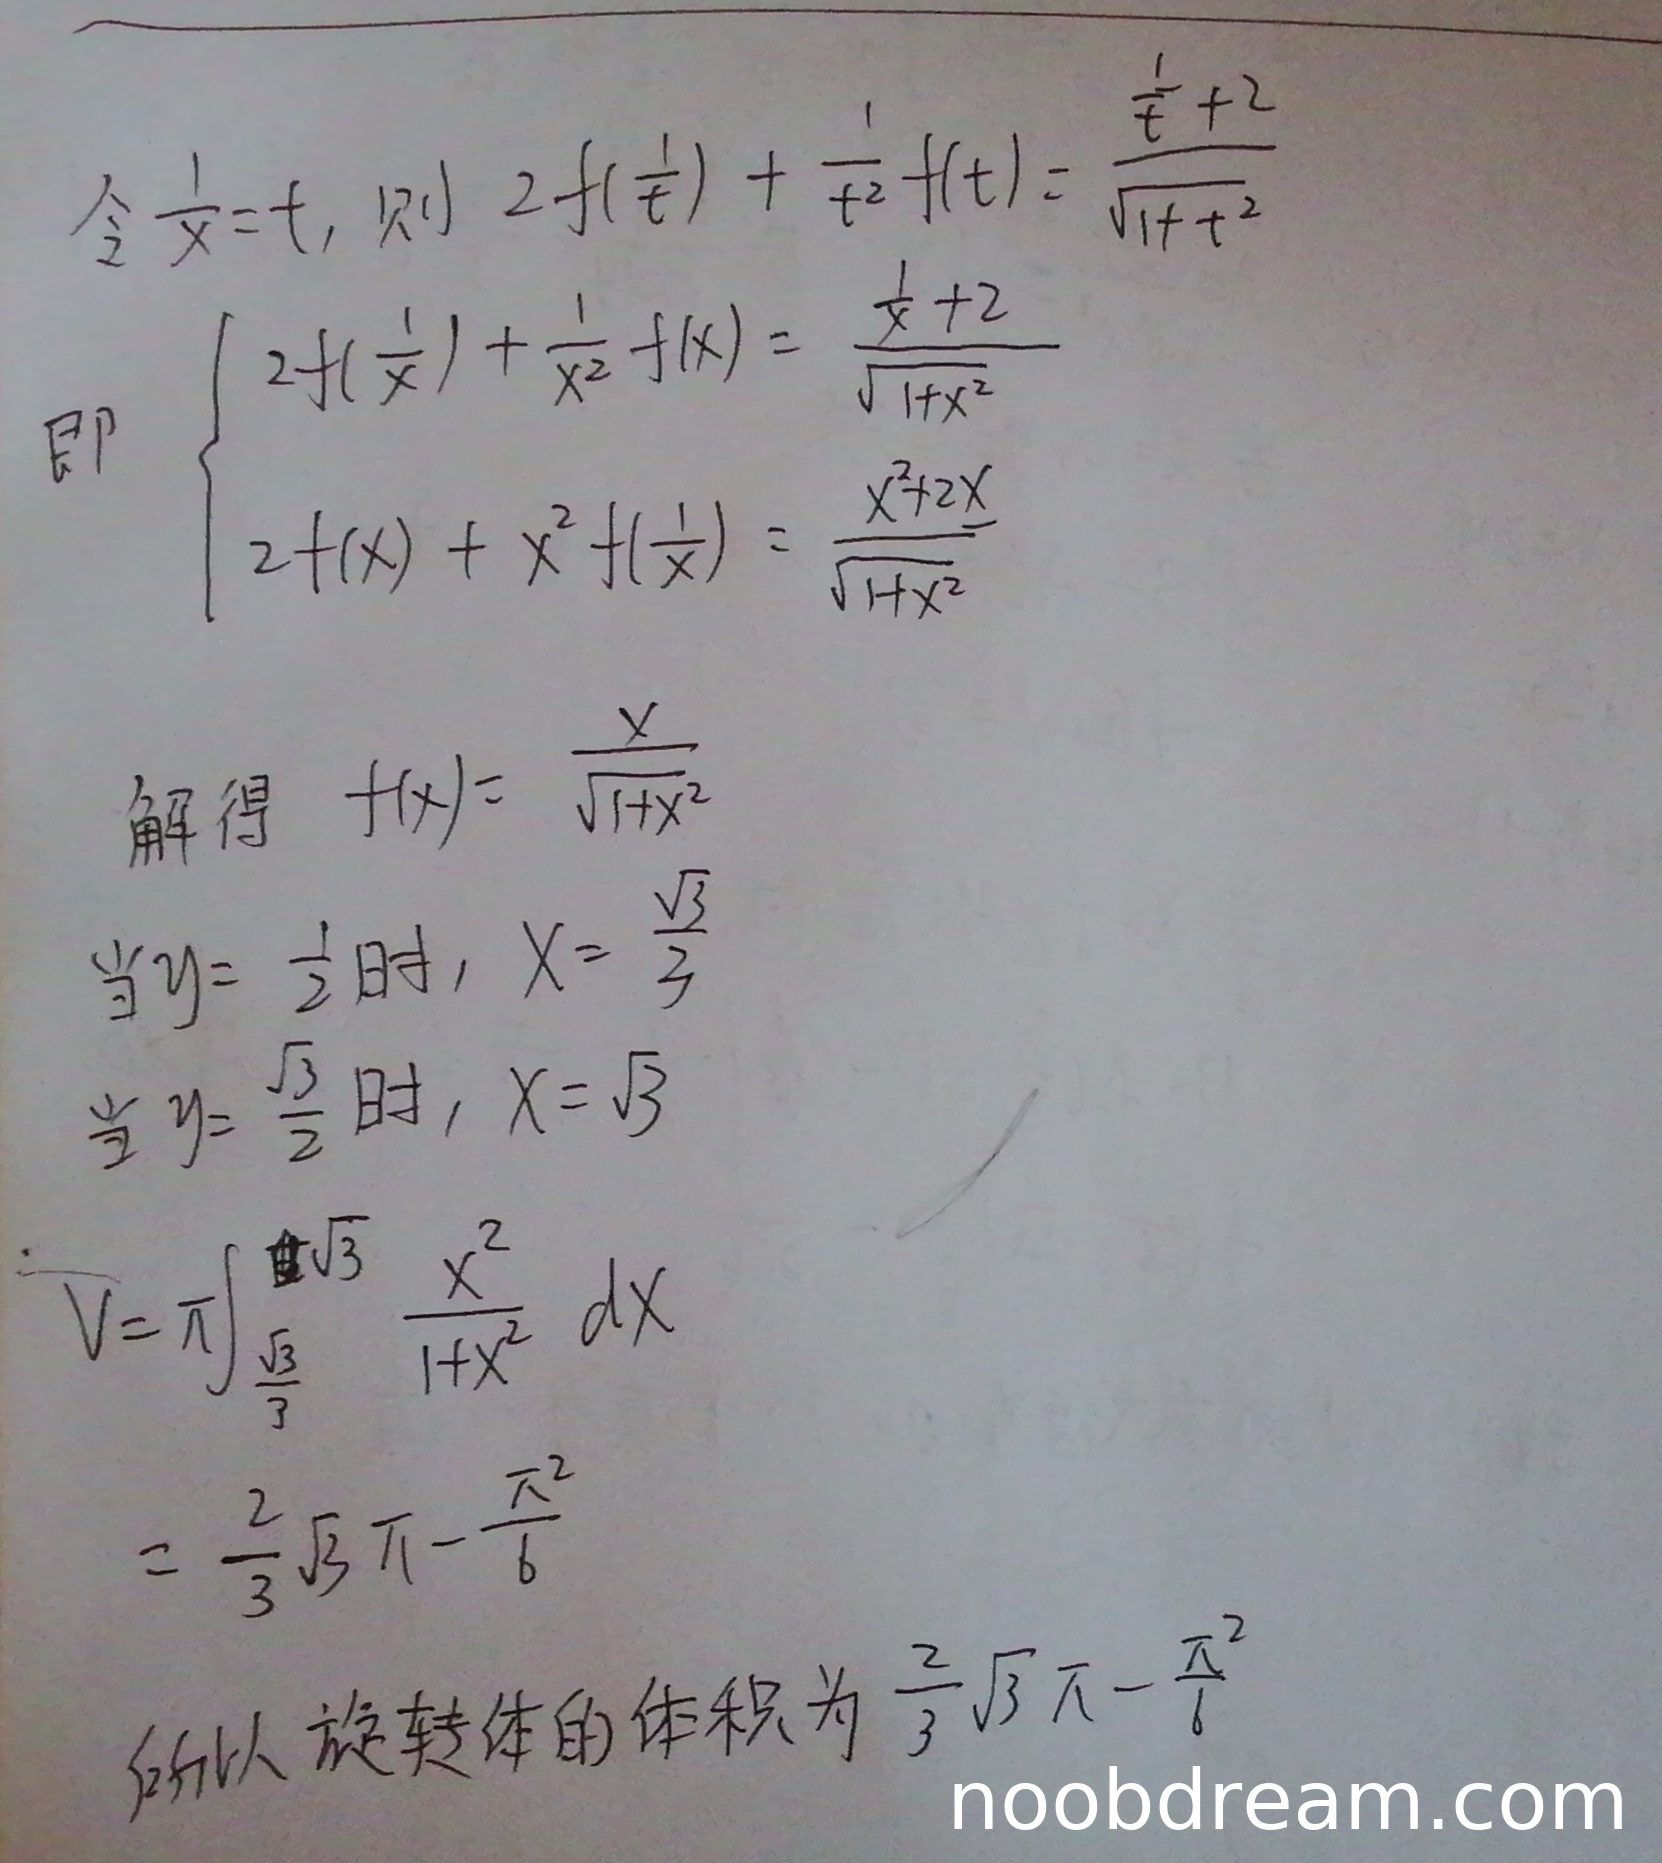 令 1/x = t, 则 2f(1/t) + 1/t² f(t) = (1/t + 2)/√(1+t²)
即 { 2f(1/x) + 1/x² f(x) = (1/x + 2)/√(1+x²)
2f(x) + x² f(1/x) = (x²+2x)/√(1+x²)
解得 f(x) = x/√(1+x²)
当y = 1/2 时, x = √3/3
当y = √3/2 时, x = √3
V = π∫_{√3/3}^{√3} x²/(1+x²) dx
= 2/3 √3 π - π²/6
所以旋转体的体积为 2/3 √3 π - π²/6
noobdream.com